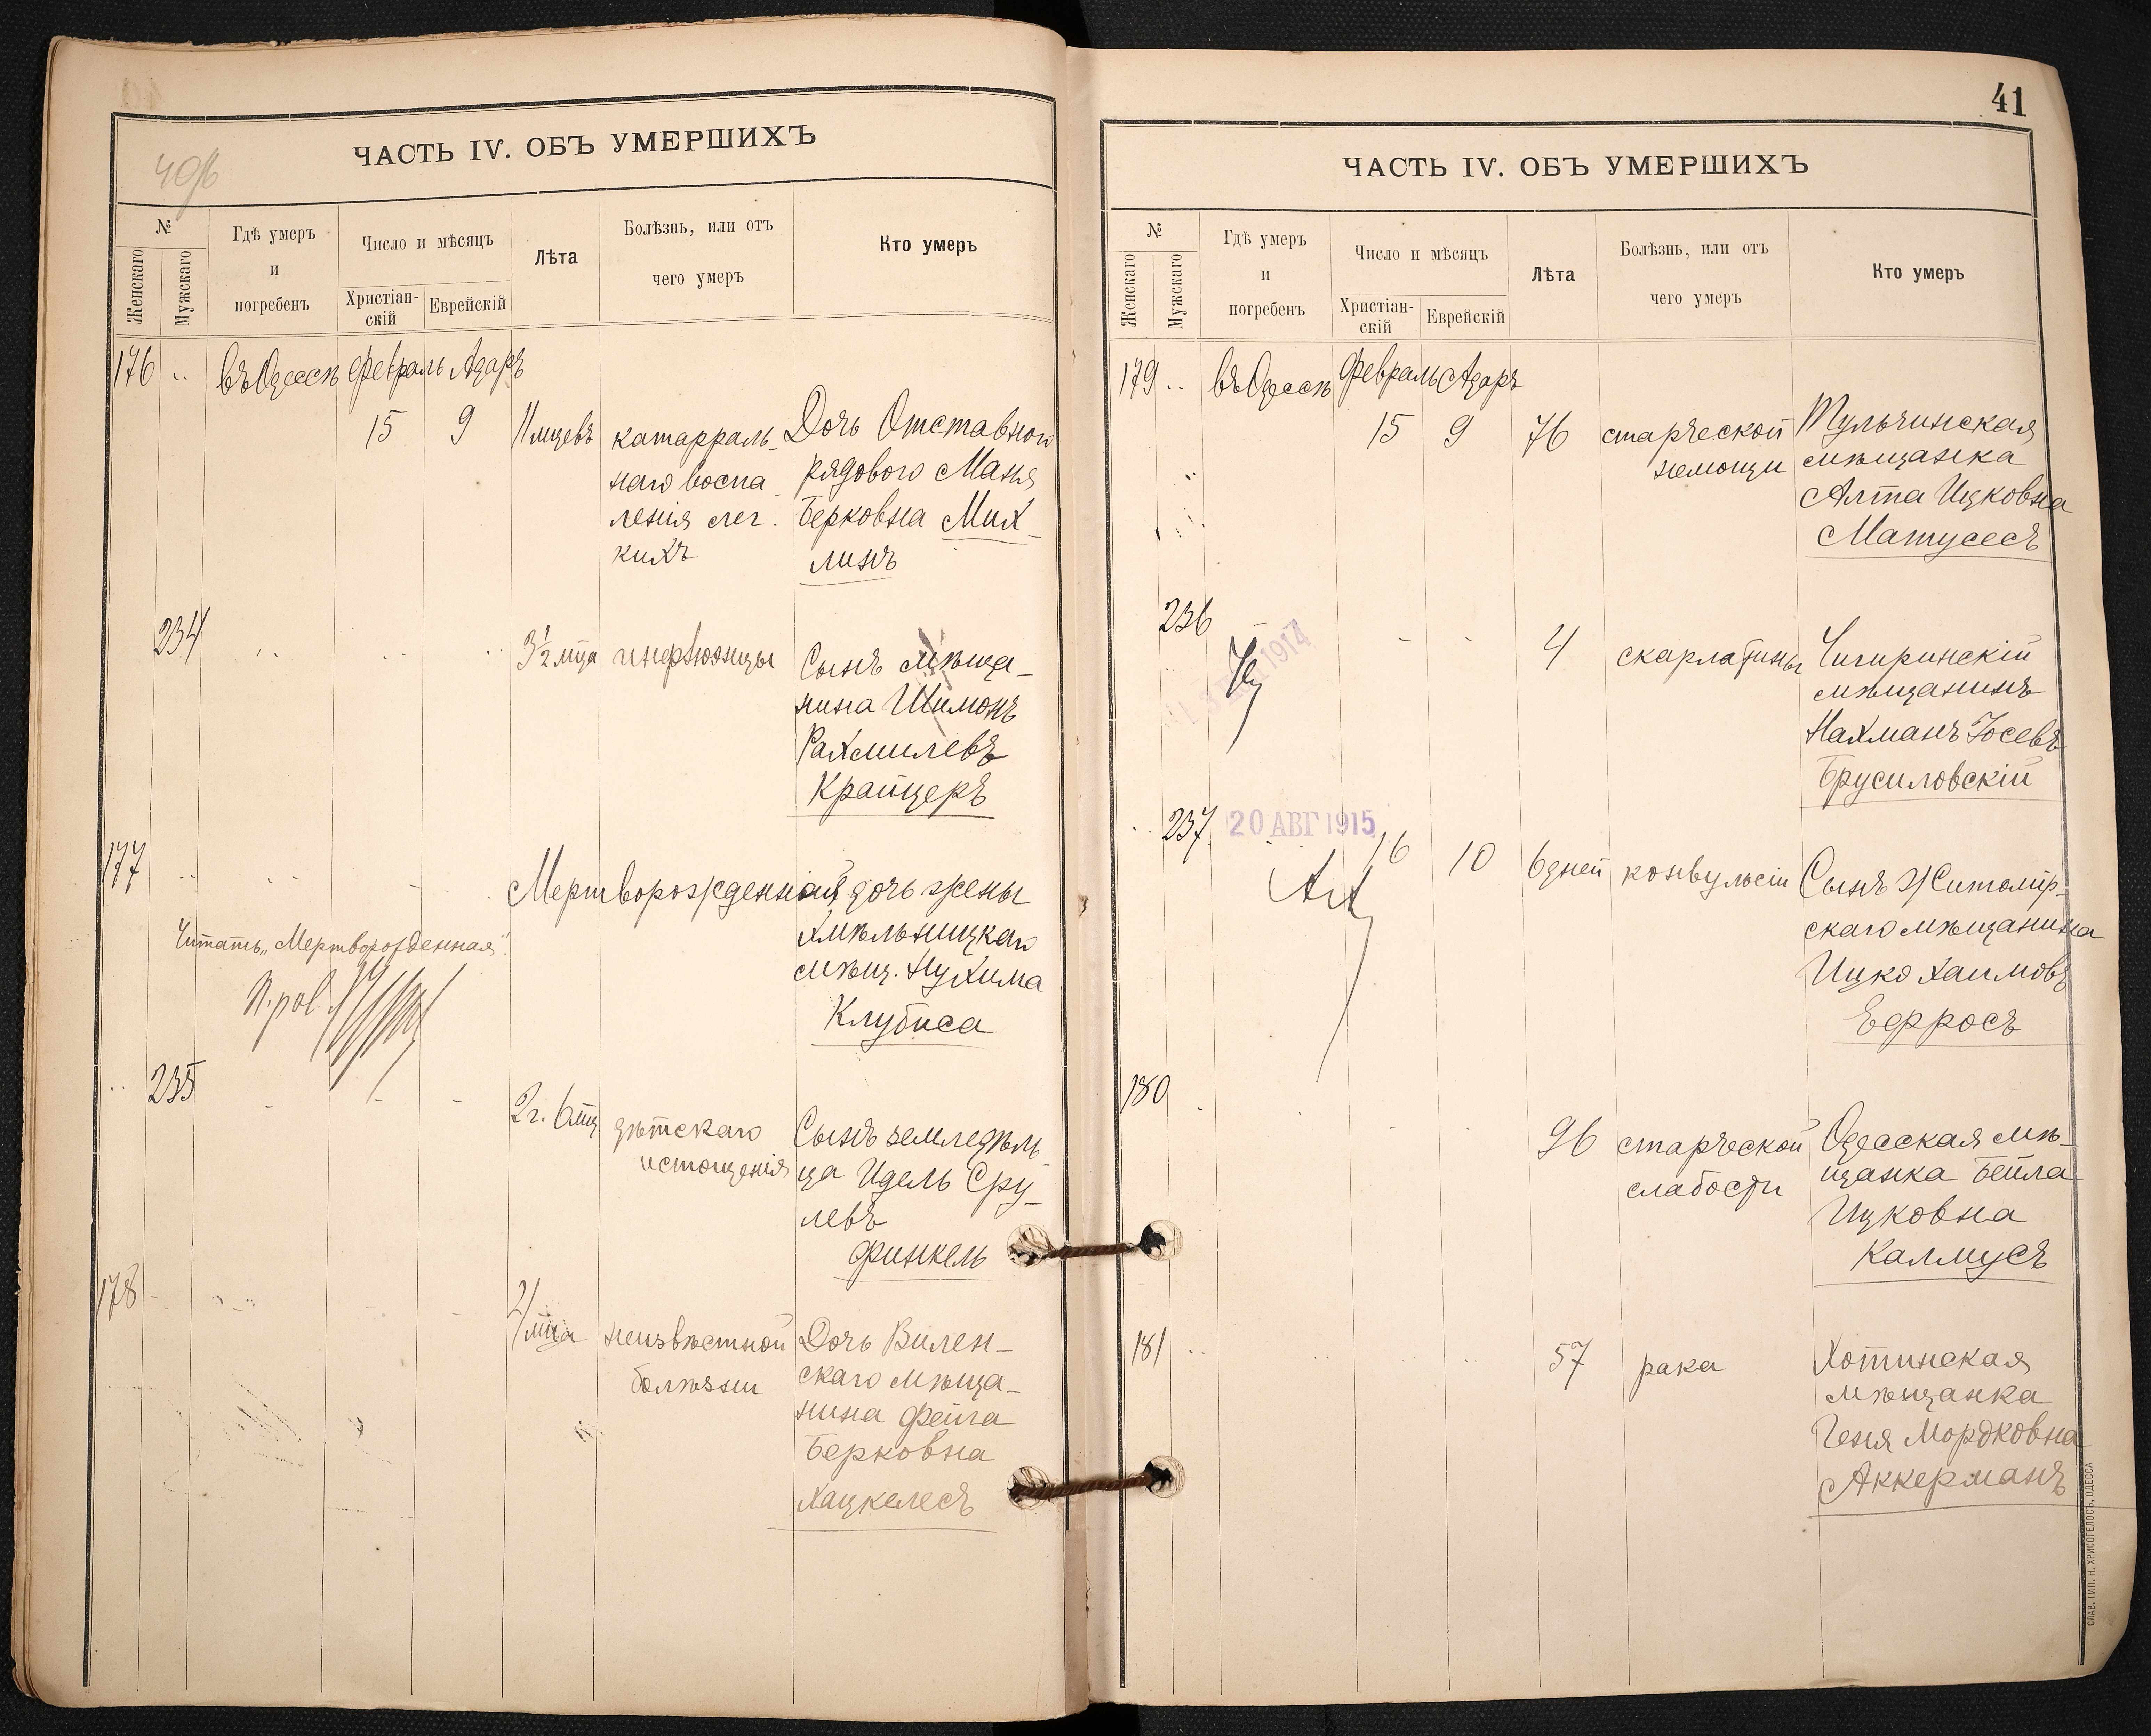 40/б
ЧАСТЬ IV. ОБЪ УМЕРШИХЪ
№
Женскаго
Мужскаго
Гдѣ умеръ
и
погребенъ
Число и мѣсяцъ
Христіан-
скій
Еврейскій
Лѣта
Болѣзнь, или отъ
чего умеръ
Кто умеръ
176 въ Одессѣ Февраль Адаръ
15 9 11 мцевъ
катарраль-
наго воспа
ленія лег-
кихъ
Дочь Отставного
рядового Маня
Берковна Мих-
линъ
234
3½ мца инфлюэнцы
Сынъ мѣща-
нина Шимонъ
Рахмилевъ
Крайцеръ
177
Мертворожденная дочь жены
Хмѣльницкаго
мѣщ. Нухима
Клубиса
Читать „Мертворожденная".
235
2 г. 6 мц.
дѣтскаго
истощенія
Сынъ земледѣль
ца Идель Сру-
левъ
Финкель
178
4 мца
неизвѣстной
болѣзни
Дочь Вилен-
скаго мѣща-
нина Фейга
Берковна
Хацкелесъ
41
ЧАСТЬ IV. ОБЪ УМЕРШИХЪ
№
Женскаго
Мужскаго
Гдѣ умеръ
и
погребенъ
Число и мѣсяцъ
Христіан-
скій
Еврейскій
Лѣта
Болѣзнь, или отъ
чего умеръ
Кто умеръ
179 въ Одессѣ Февраль Адаръ
15 9 76
старческой
немощи
Тульчинская
мѣщанка
Алта Ицковна
Матусесъ
236
1914
4 скарлатины
Чигиринскій
мѣщанинъ
Нахманъ Іосевъ
Брусиловскій
237
20 АВГ 1915
16 10 6 дней конвульсіи
Сынъ Житомір-
скаго мѣщанина
Ицко Хаимовъ
Ефросъ
180
96
старческой
слабости
Одесская мѣ-
щанка Бейла
Ицковна
Калмусъ
181
57 рака
Хотинская
мѣщанка
Геня Мордковна
Аккерманъ
СЛАВ. ТИП. Н. ХРИСОГЕЛОСЪ, ОДЕССА